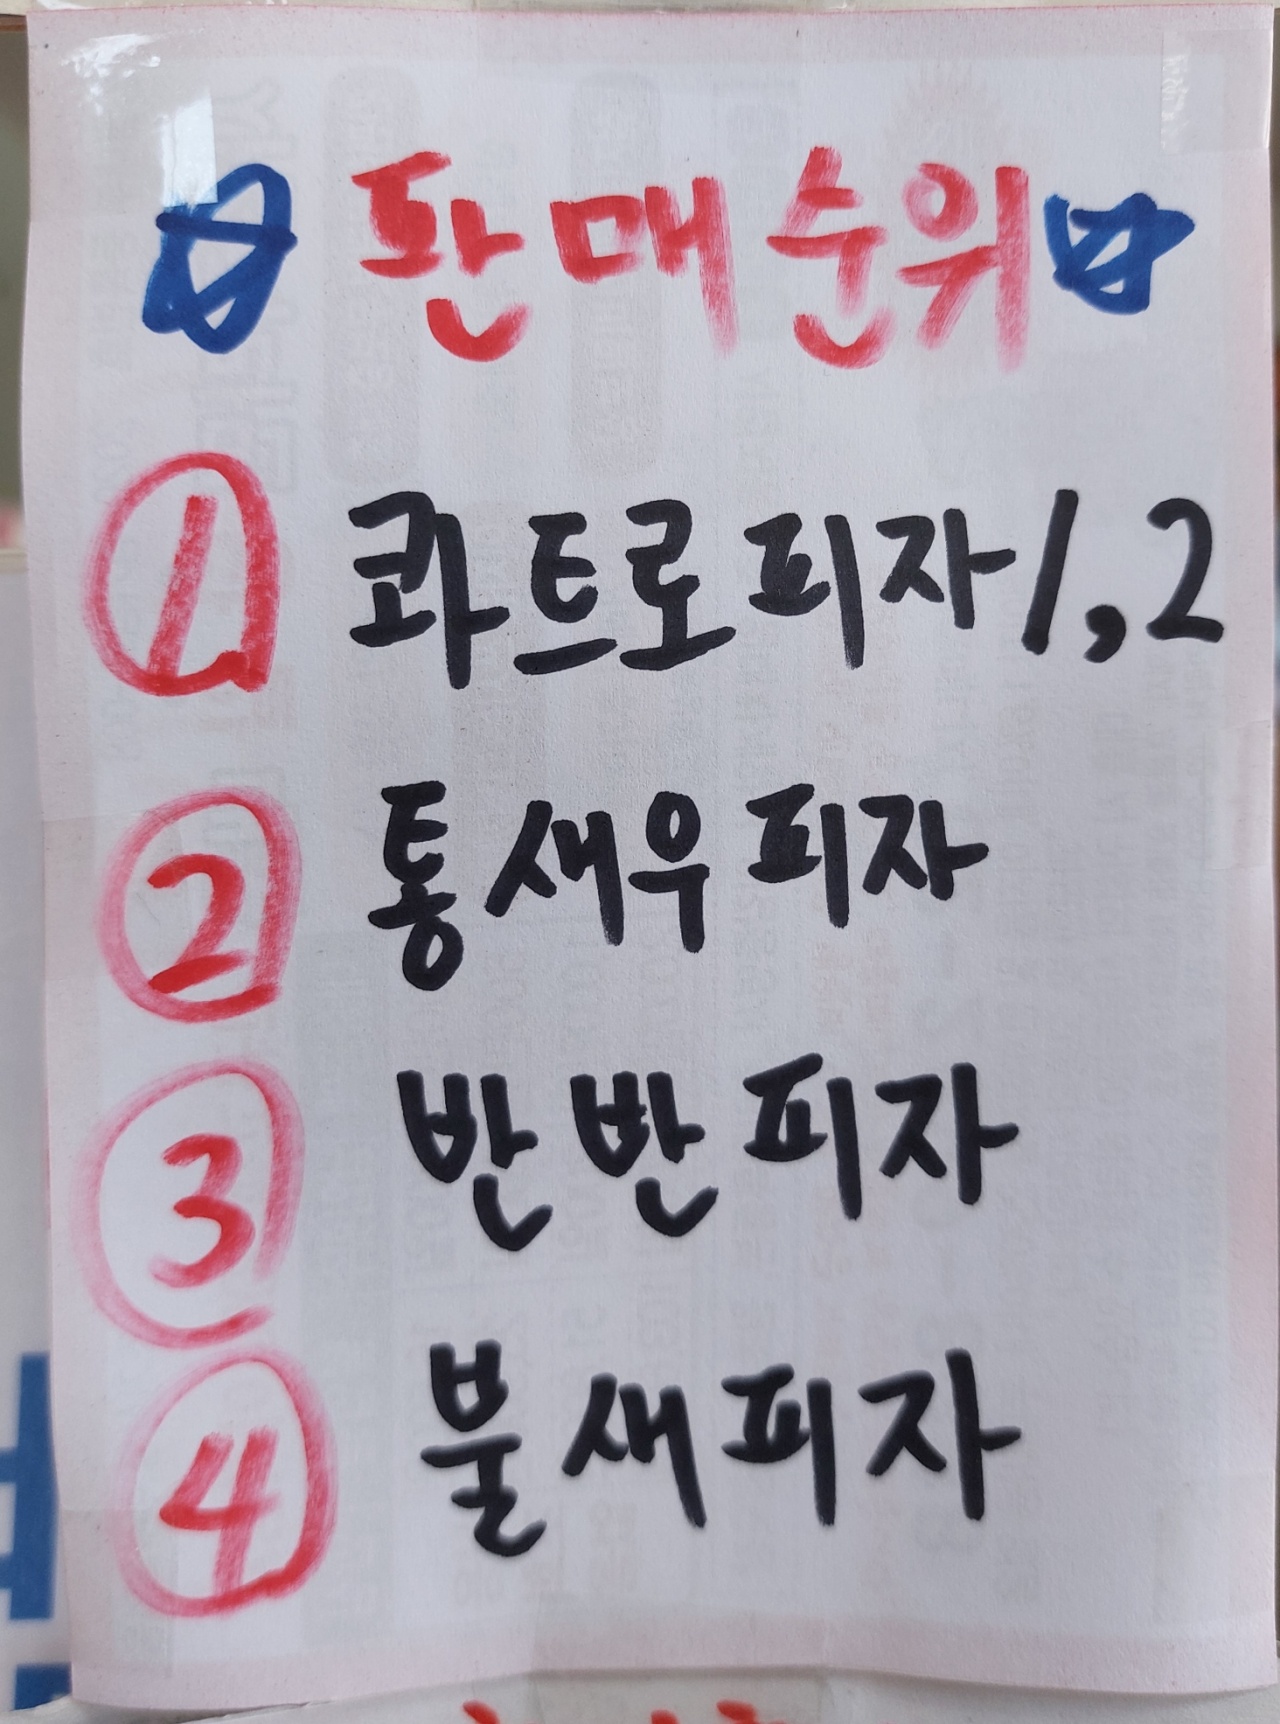 ☆ 판매순위 ☆
① 콰트로피자 1, 2
② 통새우피자
③ 반반피자
④ 불새피자